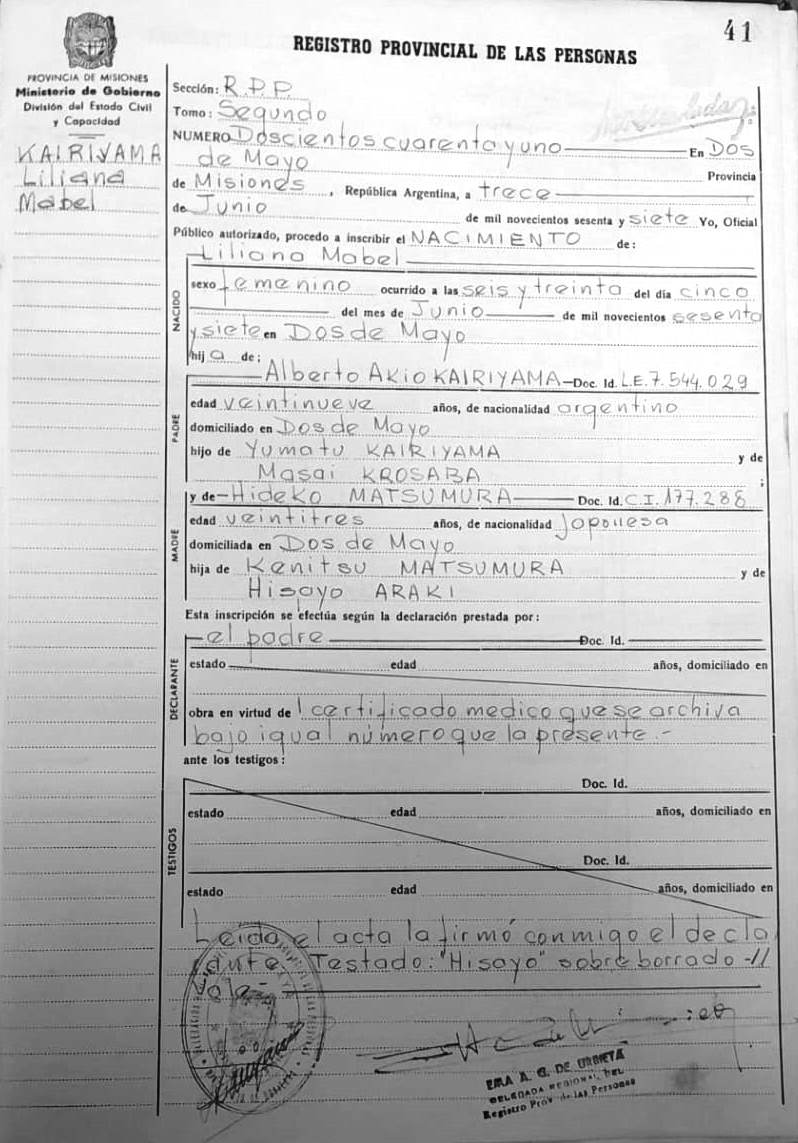 41
REGISTRO PROVINCIAL DE LAS PERSONAS
PROVINCIA DE MISIONES
Ministerio de Gobierno
División del Estado Civil
y Capacidad
KAIRIYAMA
Liliana
Mabel
Sección: R.P.P.
Tomo: Segundo
NUMERO Doscientos cuarenta y uno En Dos
de Mayo Provincia
de Misiones, República Argentina, a trece
de Junio de mil novecientos sesenta y siete Yo, Oficial
Público autorizado, procedo a inscribir el NACIMIENTO de:
Liliana Mabel
NACIDO
sexo femenino ocurrido a las seis y treinta del día cinco
del mes de Junio de mil novecientos sesenta
y siete en Dos de Mayo
hija de:
PADRE
Alberto Akio KAIRIYAMA Doc. Id. L.E. 7.544.029
edad veintinueve años, de nacionalidad argentino
domiciliado en Dos de Mayo
hijo de Yumatu KAIRIYAMA y de
Masai KROSABA ;
MADRE
y de Hideko MATSUMURA Doc. Id. C.I. 177.288
edad veintitres años, de nacionalidad japonesa
domiciliada en Dos de Mayo
hija de Kenitsu MATSUMURA y de
Hisayo ARAKI
Esta inscripción se efectúa según la declaración prestada por:
DECLARANTE
el padre Doc. Id.
estado edad años, domiciliado en
obra en virtud de l certificado medico que se archiva
bajo igual número que la presente.-
ante los testigos:
TESTIGOS
Doc. Id.
estado edad años, domiciliado en
Doc. Id.
estado edad años, domiciliado en
Leida el acta la firmó conmigo el decla
rante. Testado: "Hisayo" sobre borrado -//
Vale-
EMA A. G. DE URRIETA
DELEGADA REGIONAL DEL
Registro Prov. de las Personas